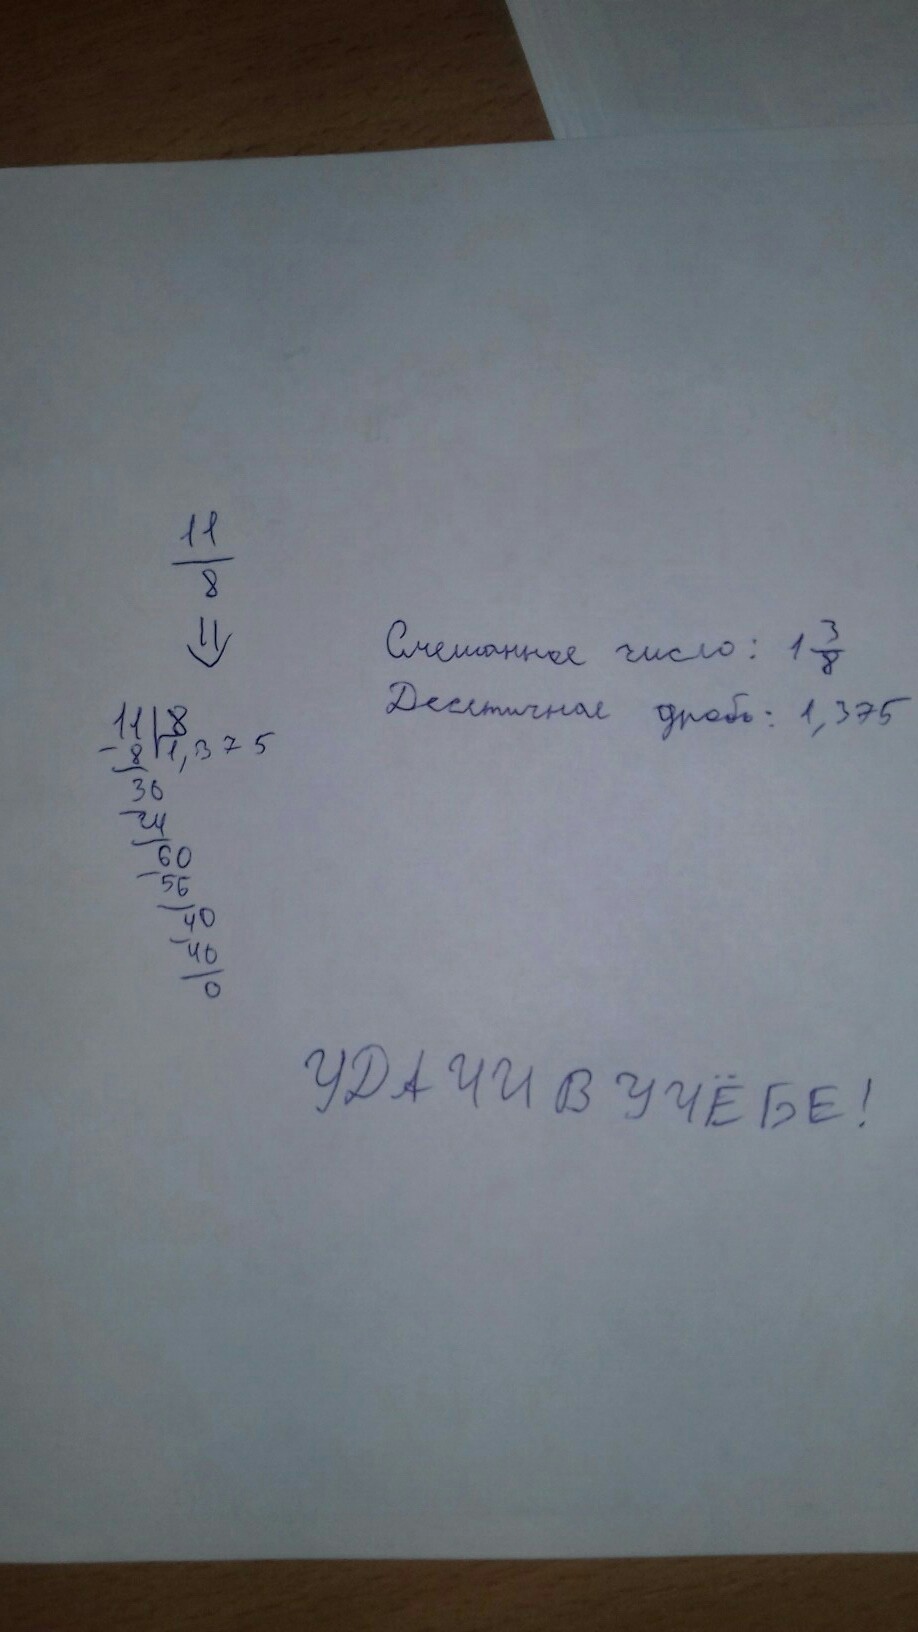 11
8
⇓
11|8
-8|1,375
30
-24
60
-56
40
-40
0
Смешанное число: 1 3/8
Десятичная дробь: 1,375
УДАЧИ В УЧЁБЕ!